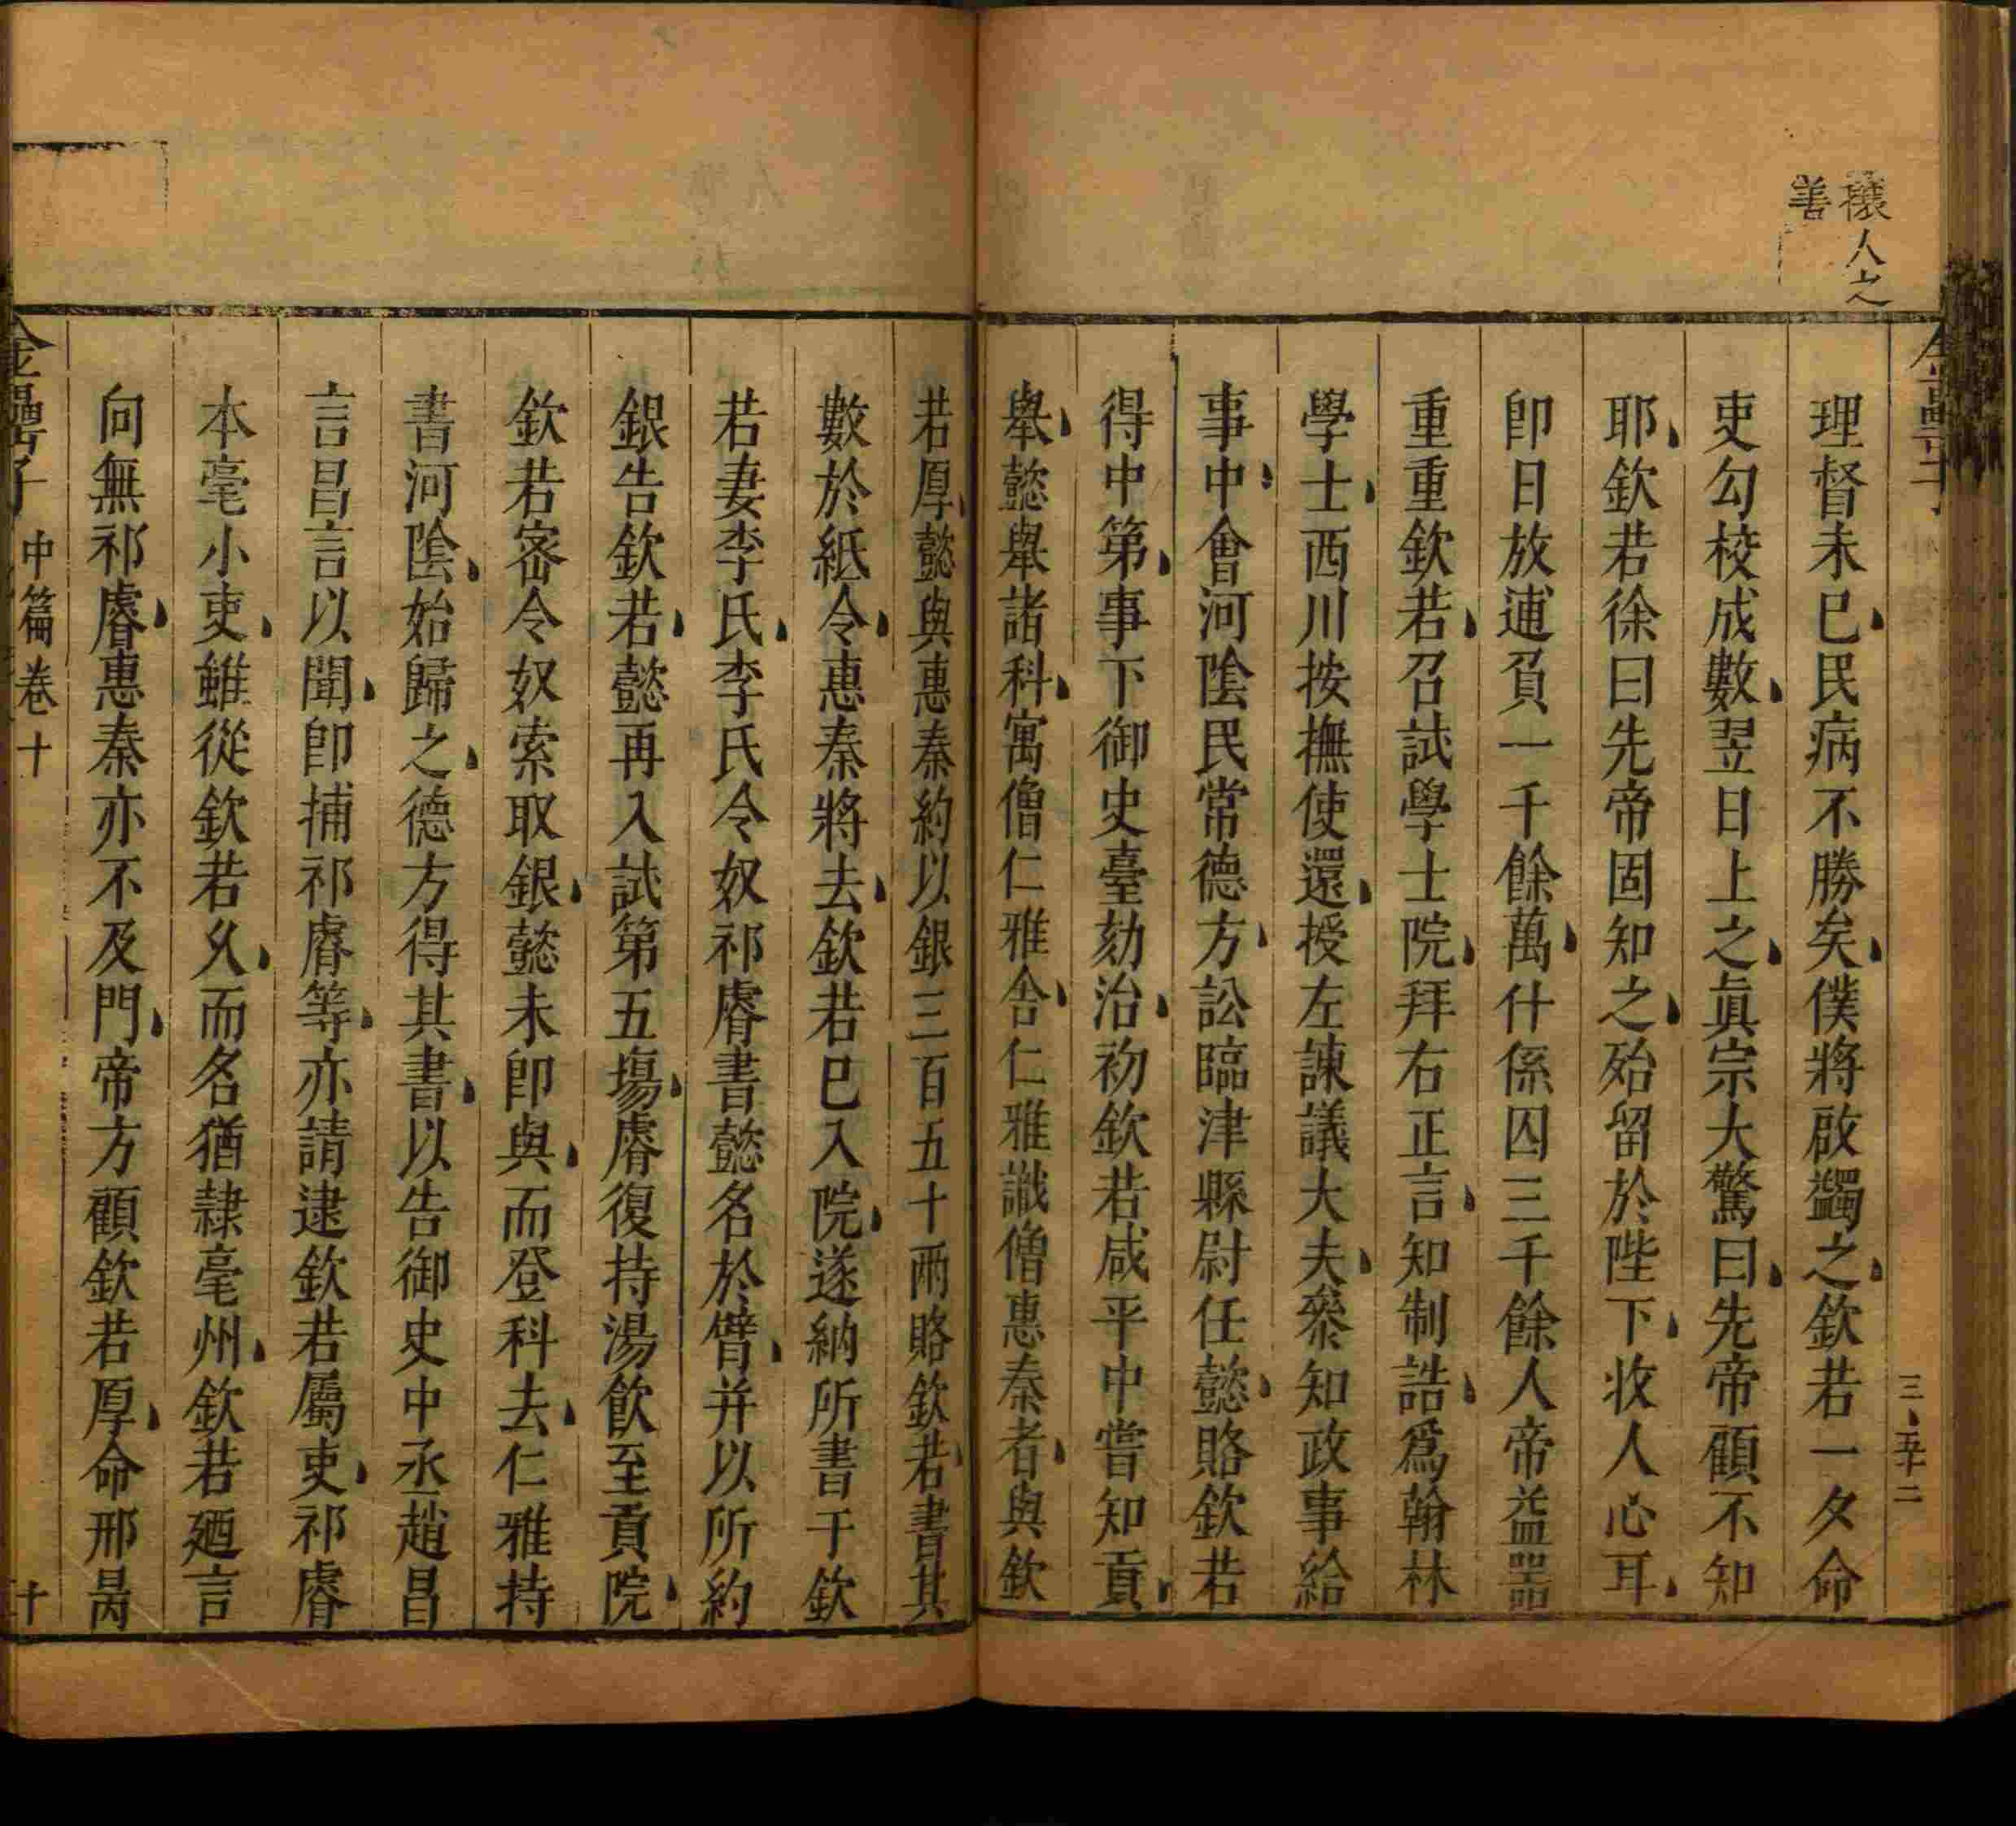 攘人之
善
理督未已民病不勝矣僕將啟蠲之欽若一夕命
吏勾校成數翌日上之眞宗大驚曰先帝顧不知
耶欽若徐曰先帝固知之殆留於陛下收人心耳
卽日放逋負一千餘萬什係囚三千餘人帝益器
重重欽若召試學士院拜右正言知制誥爲翰林
學士西川按撫使還授左諫議大夫叅知政事給
事中會河陰民常德方訟臨津縣尉任懿賂欽若
得中第事下御史臺劾治初欽若咸平中嘗知貢
舉懿舉諸科寓僧仁雅舍仁雅識僧惠秦者與欽
若厚懿與惠秦約以銀三百五十兩賂欽若書其
數於紙令惠秦將去欽若已入院遂納所書于欽
若妻李氏李氏令奴祁睿書懿名於臂并以所約
銀告欽若懿再入試第五塲睿復持湯飲至貢院
欽若密令奴索取銀懿未卽與而登科去仁雅持
書河陰始歸之德方得其書以告御史中丞趙昌
言昌言以聞卽捕祁睿等亦請逮欽若屬吏祁睿
本亳小吏雖從欽若久而名猶隷亳州欽若廼言
向無祁睿惠秦亦不及門帝方顧欽若厚命邢昺
金罍子 中篇卷十 十